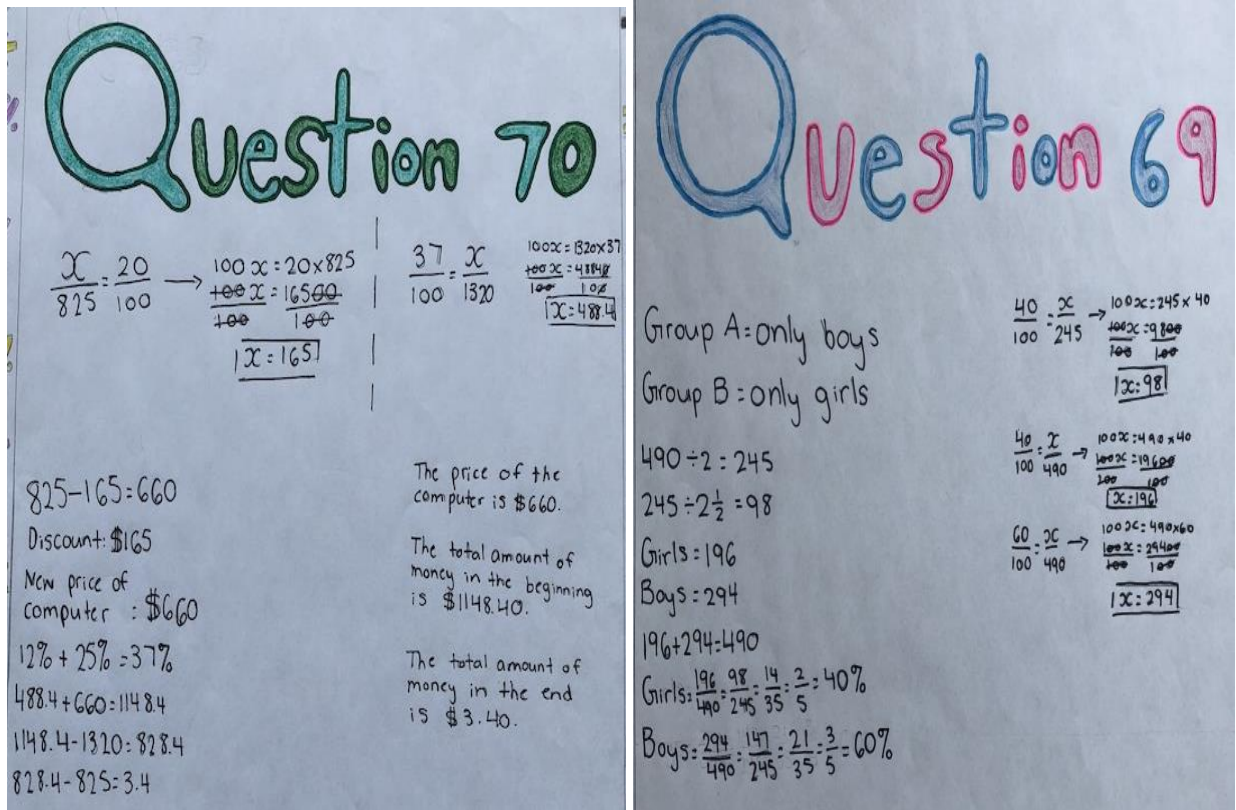 Question 70
x/825 = 20/100 → 100x = 20x825
100x/100 = 16500/100
x = 165
37/100 = x/1320
100x = 1320x37
100x/100 = 48840/100
x = 488.4
825-165=660
Discount: $165
New price of
computer : $660
12% + 25% = 37%
488.4+660=1148.4
1148.4-1320=828.4
828.4-825=3.4
The price of the
computer is $660.
The total amount of
money in the beginning
is $1148.40.
The total amount of
money in the end
is $3.40.
Question 69
Group A = only boys
Group B = only girls
490÷2 = 245
245÷2 1/2 = 98
Girls = 196
Boys = 294
196+294=490
Girls = 196/490 = 98/245 = 14/35 = 2/5 = 40%
Boys = 294/490 = 147/245 = 21/35 = 3/5 = 60%
40/100 = x/245 → 100x = 245x40
100x/100 = 9800/100
x = 98
40/100 = x/490 → 100x = 490x40
100x/100 = 19600/100
x = 196
60/100 = x/490 → 100x = 490x60
100x/100 = 29400/100
x = 294